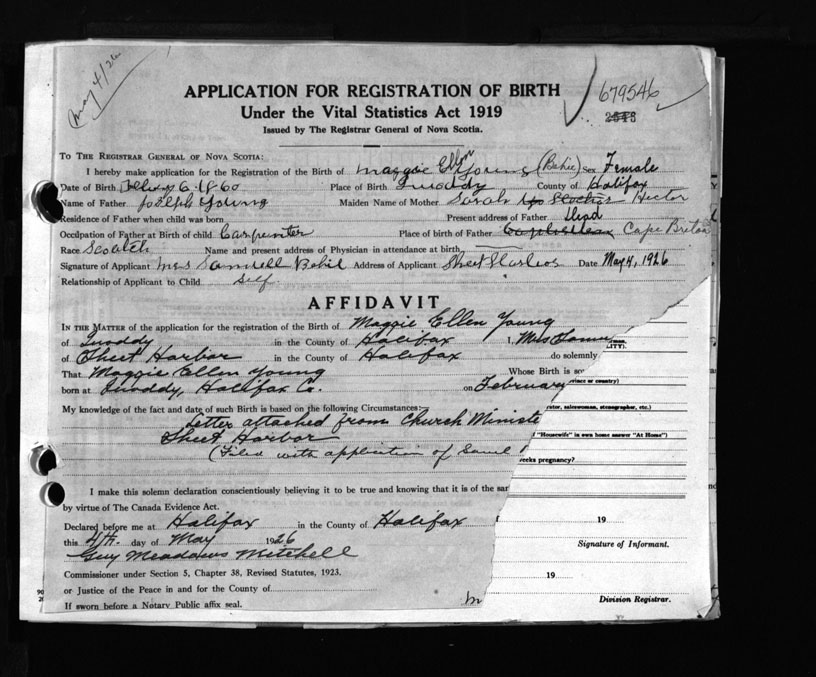 May 4/26
APPLICATION FOR REGISTRATION OF BIRTH
Under the Vital Statistics Act 1919
679546
Issued by The Registrar General of Nova Scotia.
TO THE REGISTRAR GENERAL OF NOVA SCOTIA:
I hereby make application for the Registration of the Birth of Maggie Ellen Young Sex Female
Date of Birth 6. 1860 Place of Birth Quoddy County of Halifax
Name of Father Joseph Young Maiden Name of Mother Sarah Hector
Residence of Father when child was born Present address of Father Dead
Occupation of Father at Birth of child Carpenter Place of birth of Father Cape Breton
Race Scotch Name and present address of Physician in attendance at birth
Signature of Applicant Mrs Address of Applicant Sheet Date May 4, 1926
Relationship of Applicant to Child Self
AFFIDAVIT
IN THE MATTER of the application for the registration of the Birth of Maggie Ellen Young
of Quoddy in the County of Halifax I, Mrs
of Sheet Harbor in the County of Halifax do solemnly
That Maggie Ellen Young Whose Birth is
born at Quoddy, Halifax Co. on February
My knowledge of the fact and date of such Birth is based on the following Circumstances:
Letter attached from Church Ministe
Sheet Harbor
(Filed with application of
I make this solemn declaration conscientiously believing it to be true and knowing that it is of the
by virtue of The Canada Evidence Act.
Declared before me at Halifax in the County of Halifax
this 4th. day of May 1926
Guy Meadows Mitchell
Commissioner under Section 5, Chapter 38, Revised Statutes, 1923.
or Justice of the Peace in and for the County of
If sworn before a Notary Public affix seal.
LITY).
vince or country)
rator, saleswoman, stenographer, etc.)
"Housewife" in own home answer "At Home")
eeks pregnancy?
19
Signature of Informant.
19
Division Registrar.